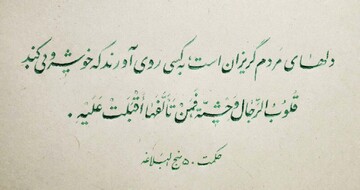 دلهای مردم گریزان است، بکسی روی آورند که خوشرویی کند
قُلُوبُ الرِّجَالِ وَحْشِیَّةٌ فَمَنْ تَأَلَّفَهَا أَقْبَلَتْ عَلَیْهِ.
حکمت ۵۰ نهج البلاغه